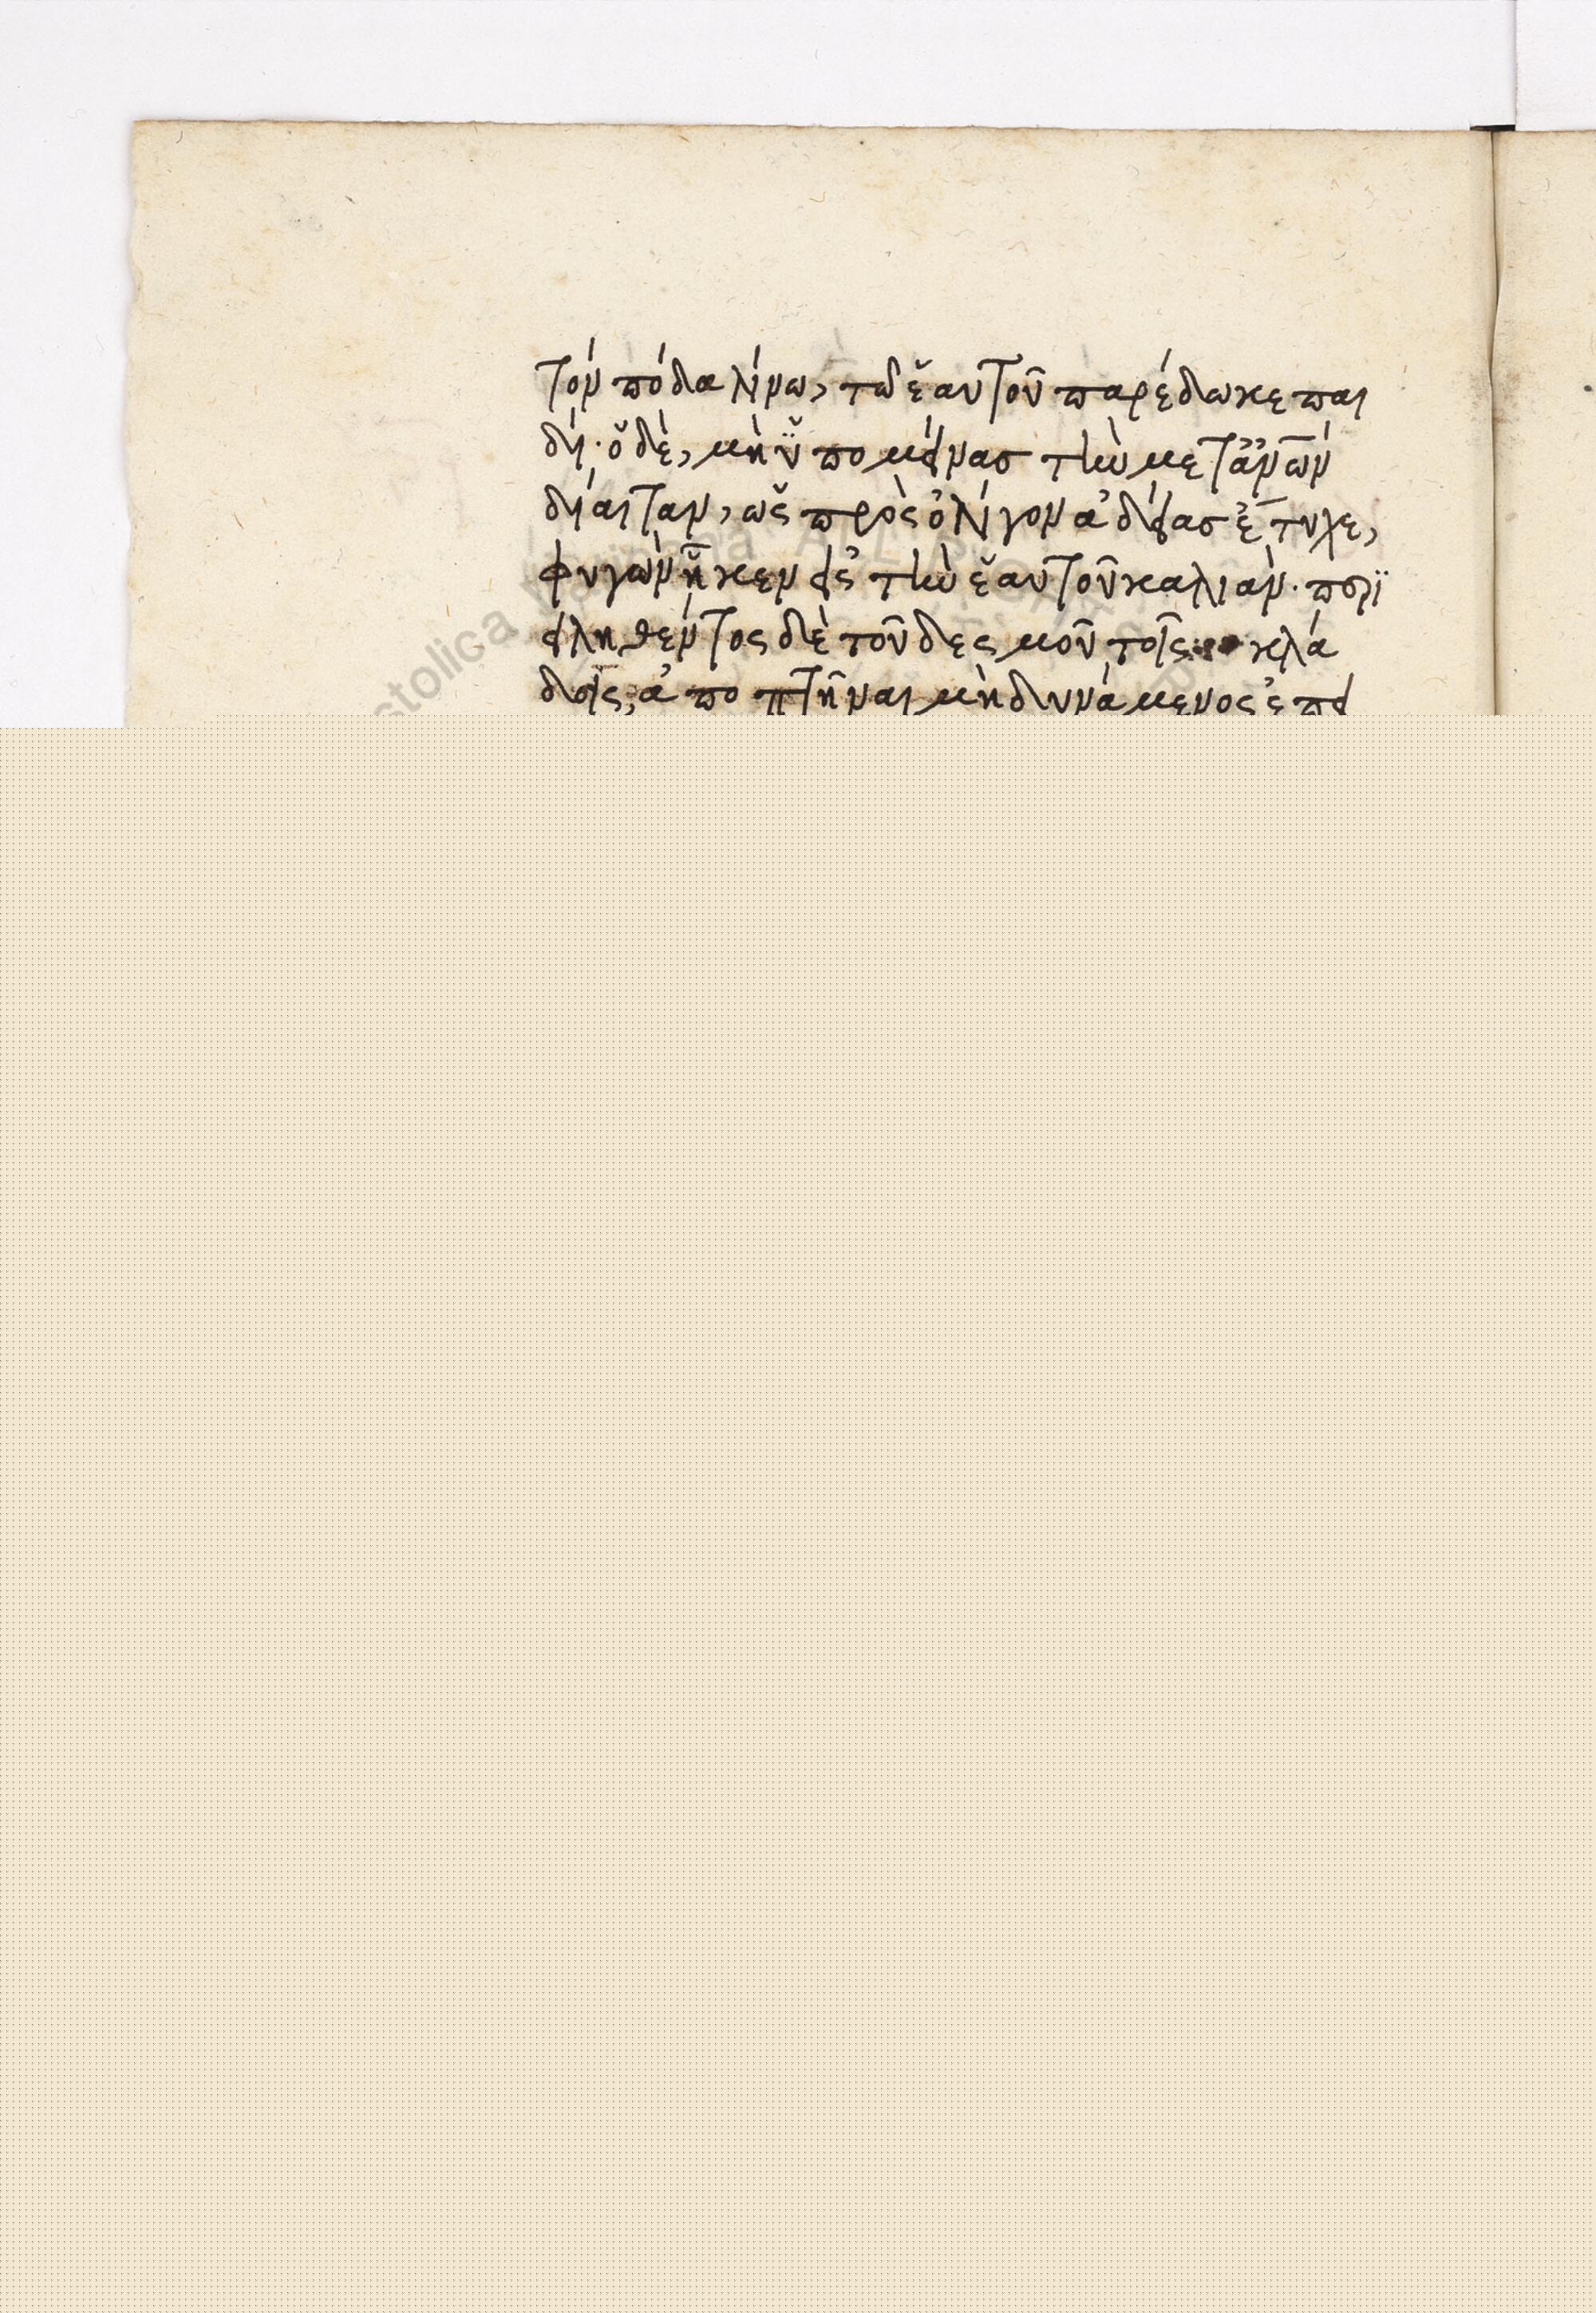 τὸν πόδα λίνω, τῶ ἑαυτοῦ παρέδωκε παι
δί· ὁ δὲ, μὴ ὑπομείνας τὴν μετὰ ἀνῶν
δίαιταν, ὡς πρὸς ὀλίγον ἀδείας ἔτυχε,
φυγὼν ἧκεν εἰς τὴν ἑαυτοῦ καλιάν. περι
ειληθέντος δὲ τοῦ δεσμοῦ τοῖς κλά
δοις, ἀποπτῆναι μὴ δυνάμενος ἐπεὶ